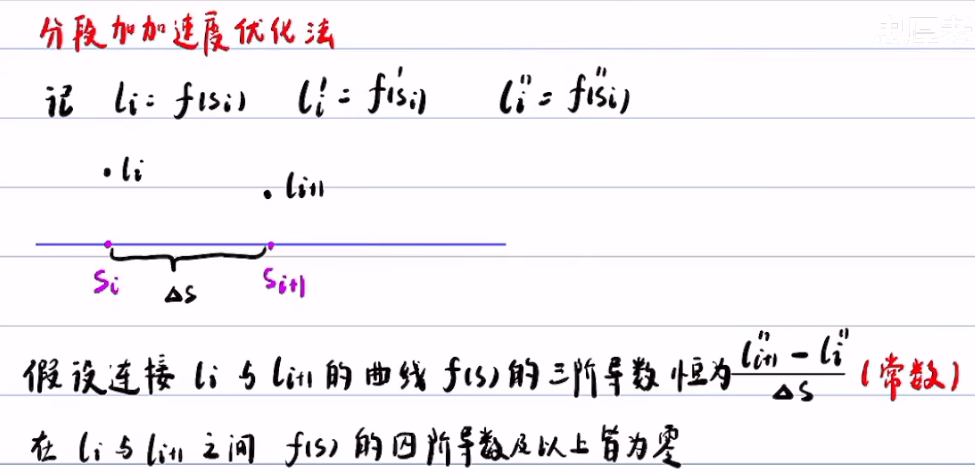 分段加加速度优化法
记 lᵢ = f(sᵢ) lᵢ' = f'(sᵢ) lᵢ'' = f''(sᵢ)
lᵢ
lᵢ₊₁
sᵢ Δs sᵢ₊₁
假设连接 lᵢ 与 lᵢ₊₁ 的曲线 f(s) 的三阶导数恒为 (lᵢ₊₁'' - lᵢ'')/Δs (常数)
在 lᵢ 与 lᵢ₊₁ 之间 f(s) 的四阶导数及以上皆为零